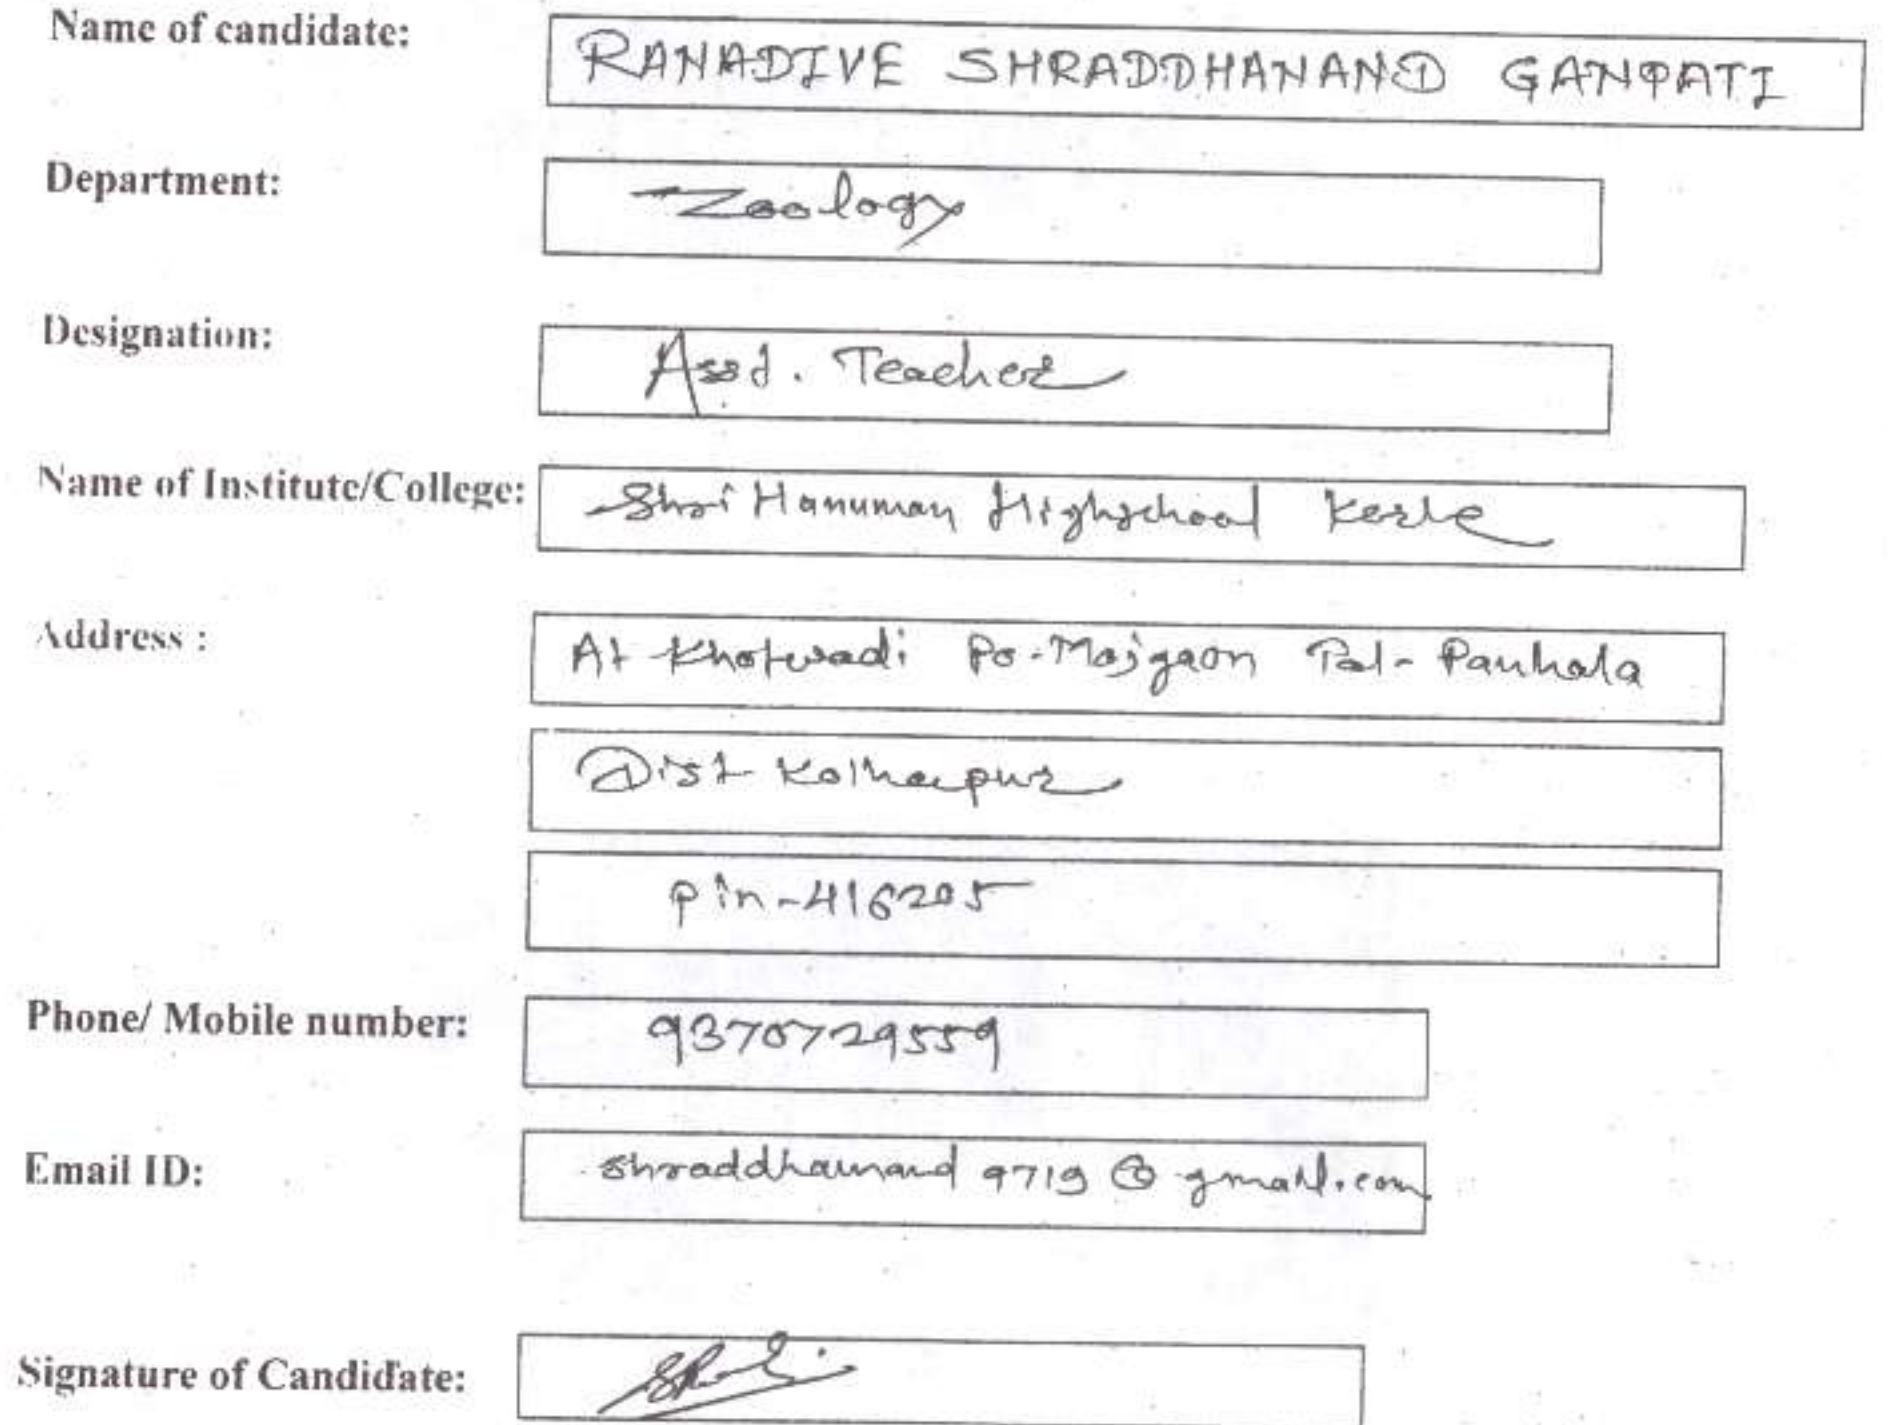 Name of candidate: RANADIVE SHRADDHANAND GANPATI
Department: Zoology
Designation: Asst. Teacher
Name of Institute/College: Shri Hanuman Highschool Kerle
Address : At Khotwadi Po-Majgaon Tal- Panhala
Dist Kolhapur
pin-416205
Phone/ Mobile number: 9370729559
Email ID: shraddhanand 9719 @ gmail.com
Signature of Candidate: